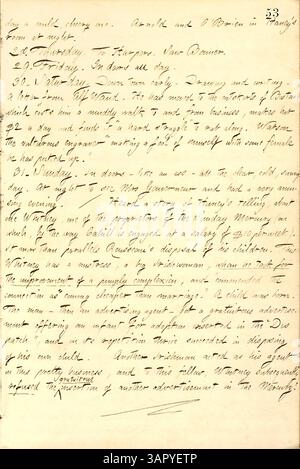 53
day a mild cheery one. Arnold and O'Brien in Haney's
room at night.
28. Thursday. To Harpers. Saw Bonner.
29. Friday. In doors all day.
30. Saturday. Down town early. Drawing and writing.
a letter from Alf Waud. He has moved to the outskirts of Boston
which costs him a muddy walk to and from business, makes but
$2 a day and finds it a hard struggle to get along. Watson
the valturous engraver making a fool of himself with some female
he has picked up.
31. Sunday. In doors the an use all the clear, cold, sunny
day. At night to see Mrs Gouverneur and had a very amu-
sing evening. Heard a story of Haney's telling, about
one Whitney, one of the proprietors of the Sunday Mercury on
which, by the way Cahill is engaged at a salary of $10 per week.
It more than parallels Rousseau's disposal of his children. This
Whitney has a mistress, a big Irishwoman, whom he took for
the improvement of a pimply complexion, and commended the
connection as coming cheaper than marriage. A child was born.
The man then an advertising agent got a gratuitous advertise-
ment offering an infant for adoption inserted in the Dis-
patch, and on its repetition thrice succeeded in disposing
of his own child. Another Irishman acted as his agent
in this pretty business, and to this fellow Whitney subsequently
gratuitous
refused the insertion of another advertisement in the Mercury!